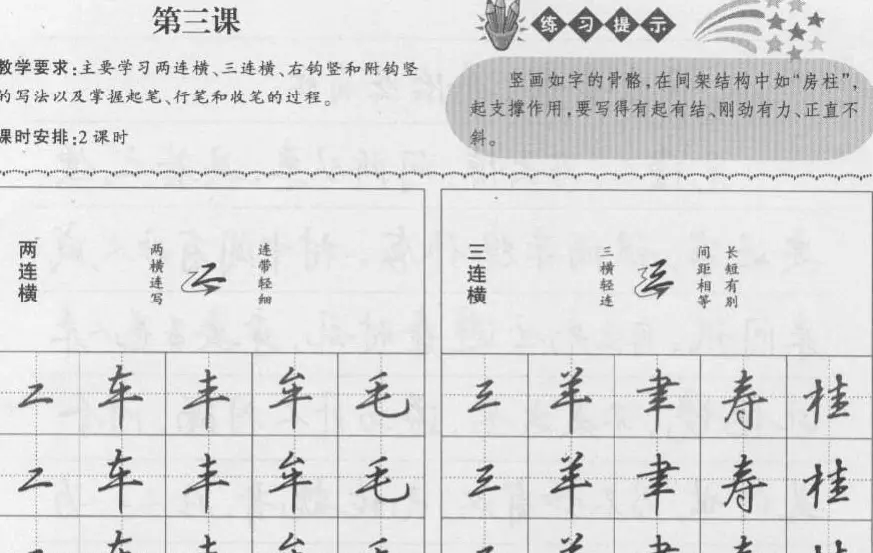 第三课
教学要求:主要学习两连横、三连横、右钩竖和附钩竖
的写法以及掌握起笔、行笔和收笔的过程。
课时安排:2课时
练习提示
竖画如字的骨骼,在间架结构中如“房柱”,
起支撑作用,要写得有起有结、刚劲有力、正直不
斜。
两连横
两横连写
连带轻细
二 车 丰 牟 毛
二 车 丰 牟 毛
三连横
三横轻连
间距相等
长短有别
三 羊 聿 寿 桂
三 羊 聿 寿 桂